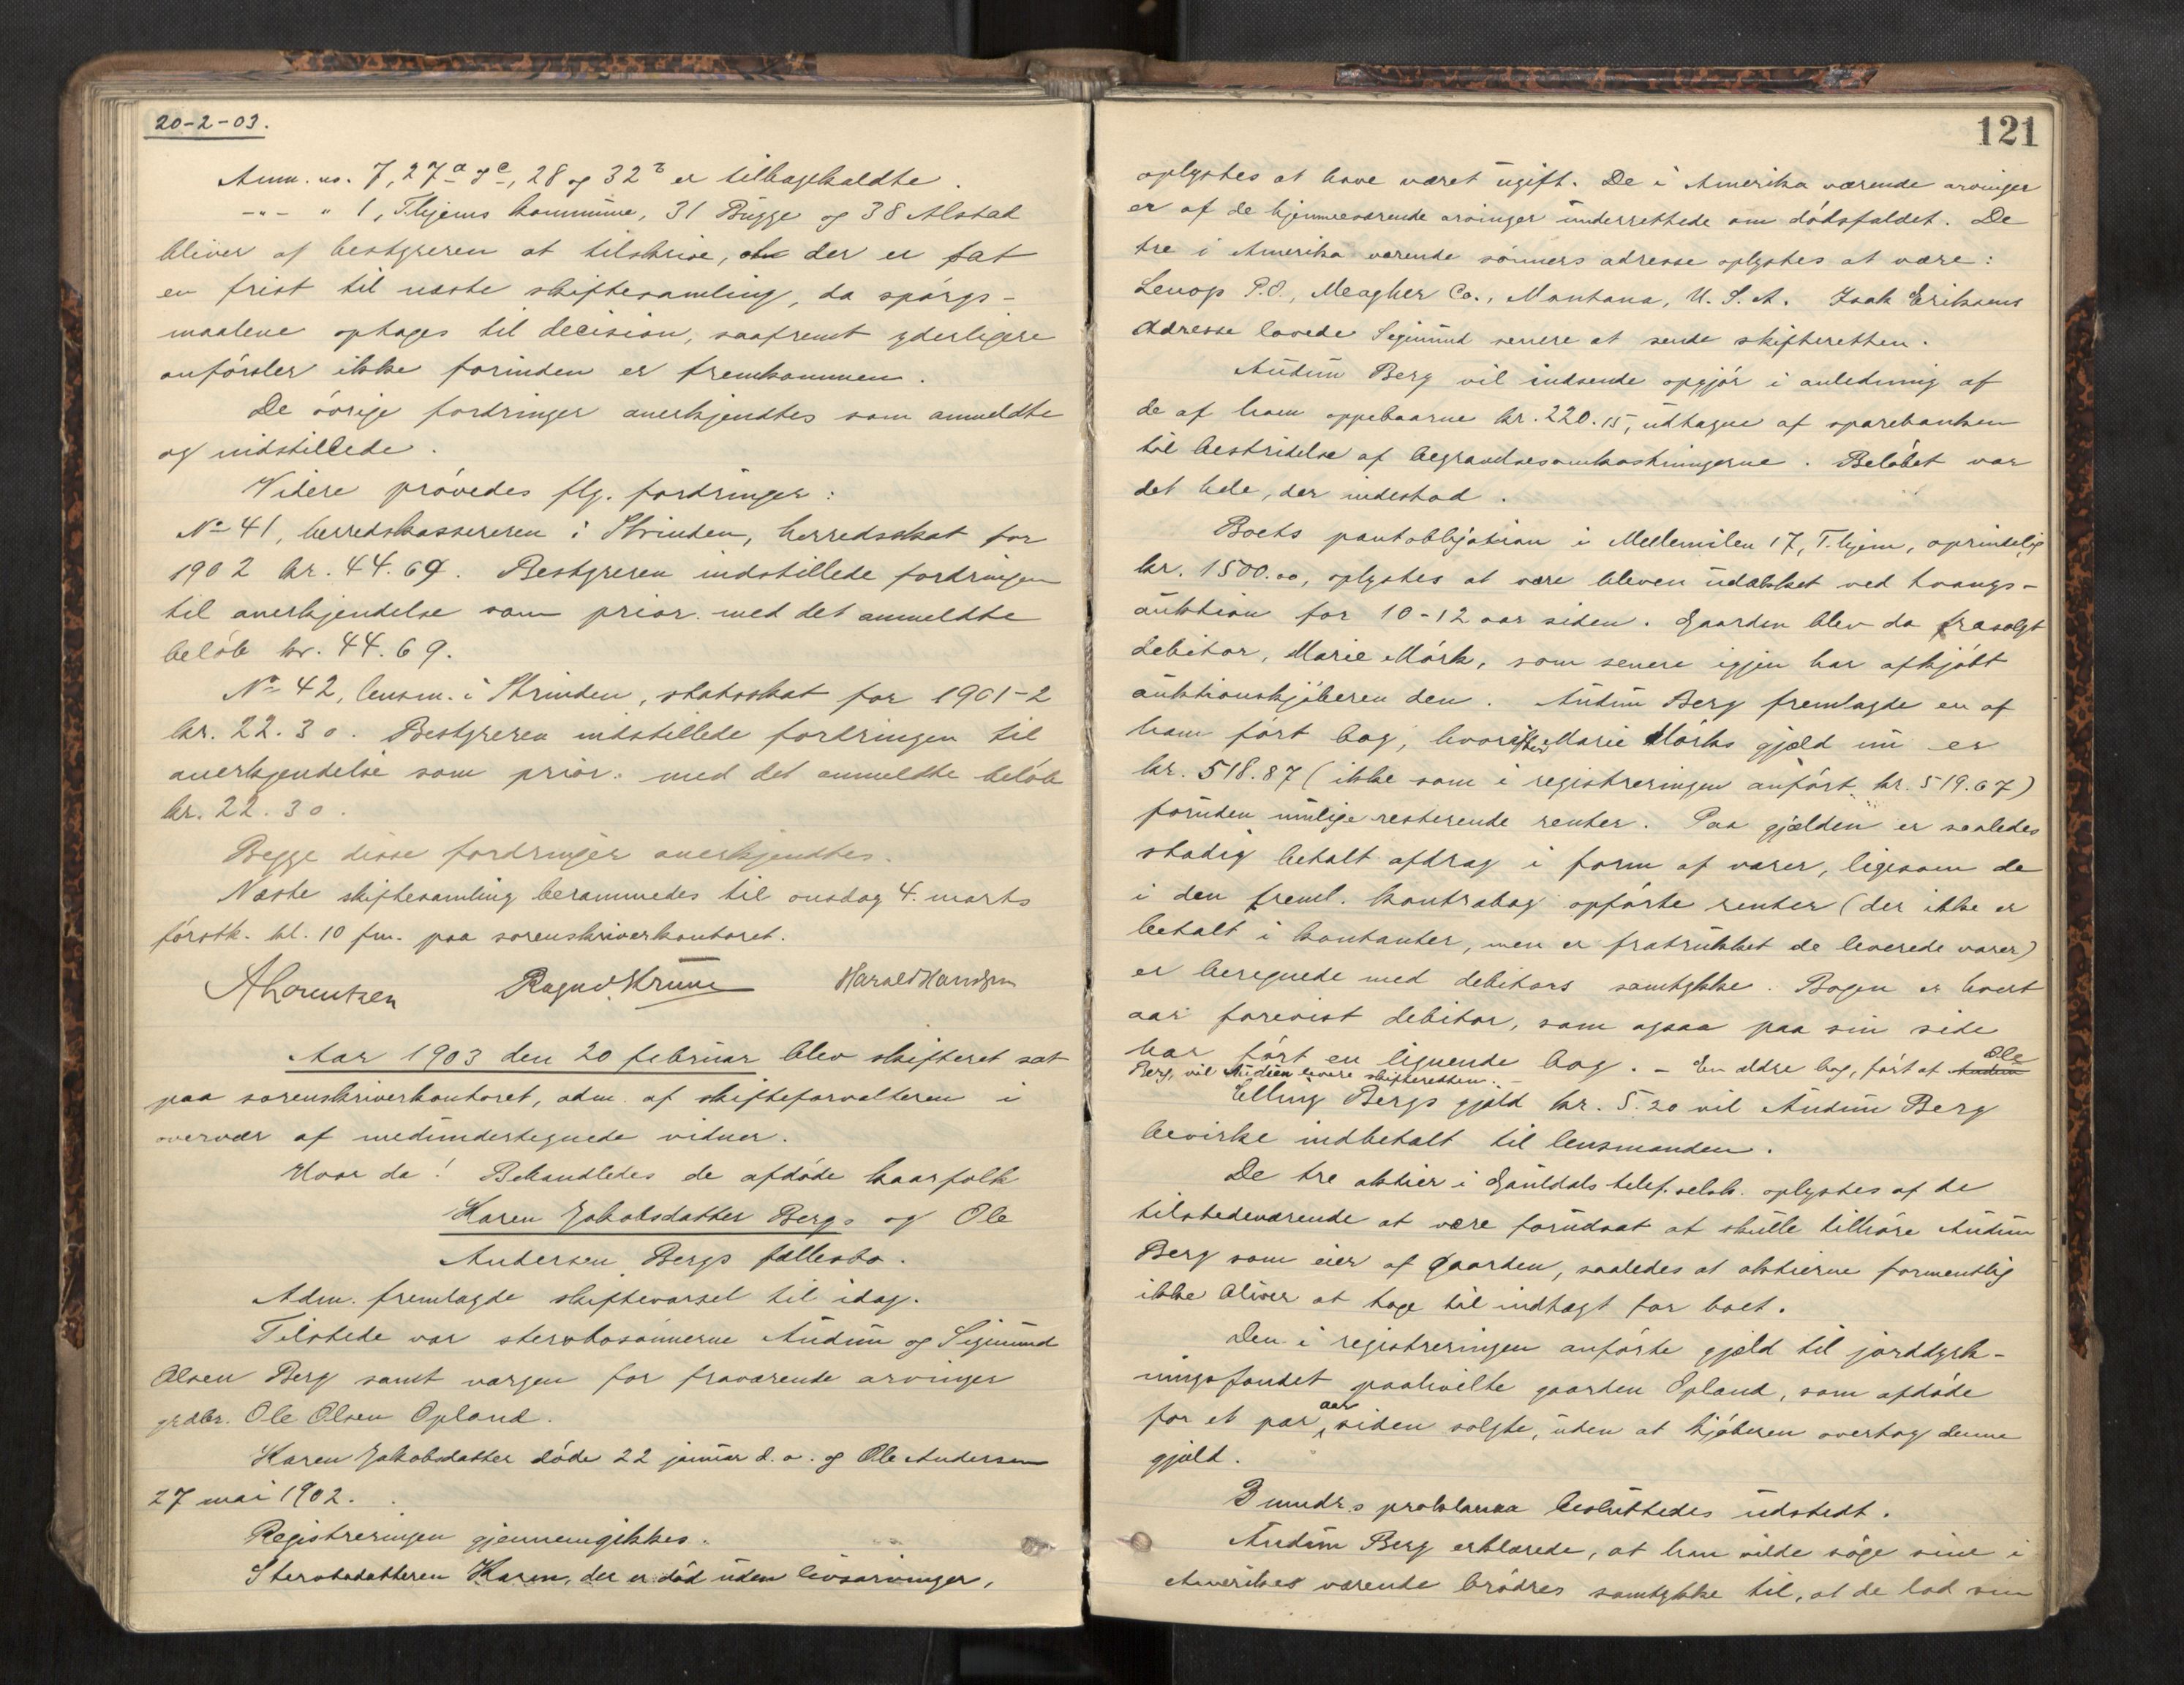 20-2-03.
Anm. no. 7, 27a & c, 28 og 32b er tilbagekaldte.
-"- " 1, T.hjems kommune, 31 Bugge og 38 Alstad
bliver af bestyreren at tilskrive, der er sat
en frist til næste skiftesamling, da spørgs-
maalene optages til decision, saafremt yderligere
anførsler ikke forinden er fremkommen.
De øvrige fordringer anerkjendtes som anmeldte
og indstillede.
Videre prøvedes flg. fordringer:
No 41, herredskassereren i Strinden, herredsskat for
1902 kr. 44.69. Bestyreren indstillede fordringen
til anerkjendelse som prior. med det anmeldte
beløb kr. 44.69.
No 42, lensm. i Strinden, statsskat for 1901-2
kr. 22.30. Bestyreren indstillede fordringen til
anerkjendelse som prior. med det anmeldte beløb
kr. 22.30.
Begge disse fordringer anerkjendtes.
Næste skiftesamling berammedes til onsdag 4. marts
førstk. kl. 10 fm. paa sorenskriverkontoret.
A Lorentzen Ragnv. Krüne Harald Handsen
Aar 1903 den 20 februar blev skifteret sat
paa sorenskriverkontoret, adm. af skifteforvalteren i
overvær af medundertegnede vidner.
Hvor da! Behandledes de afdøde kaarfolk
Karen Jakobsdatter Bergs og Ole
Andersen Bergs fællesbo.
Adm. fremlagde skiftevarsel til idag.
Tilstede var stervbosønnerne Audun og Sigmund
Olsen Berg samt værgen for fraværende arvinger
grdbr. Ole Olsen Opland.
Karen Jakobsdatter døde 22 januar d.a. og Ole Andersen
27 mai 1902.
Registreringen gjennemgikkes.
Stervbodatteren Karen, der er død uden livsarvinger,
121
oplystes at have været ugift. De i Amerika værende arvinger
er af de hjemmeværende arvinger underrettede om dødsfaldet. De
tre i Amerika værende sønners adresse oplystes at være:
Lenop P.O., Meagher Co., Montana, U.S.A. Isak Eriksens
Adresse lovede Sigmund senere at sende skifteretten.
Audun Berg vil indsende opgjør i anledning af
de af ham oppebaarne kr. 220.15, udtagne af sparebanken
til bestridelse af begravelsesomkostningerne. Beløbet var
det hele, der indestod.
Boets pantobligation i Mellemilen 17, T.hjem, oprindelig
kr. 1500.00, oplystes at være bleven udelukket ved tvangs-
auktion for 10-12 aar siden. Gaarden blev da frasolgt
debitor, Marie Mørk, som senere igjen har afkjøbt
auktionskjøberen den. Audun Berg fremlagde en af
ham ført bog, hvorefter Marie Mørks gjæld nu er
kr. 518.87 (ikke som i registreringen anført kr. 519.67)
foruden mulige resterende renter. Paa gjælden er saaledes
stadig betalt afdrag i form af varer, ligesom de
i den freml. kontrabog opførte renter (der ikke er
betalt i kontanter, men er fratrukket de leverede varer)
er beregnede med debitors samtykke. Bogen er hvert
aar forevist debitor, som ogsaa paa sin side
har ført en lignende bog. - En ældre bog, ført af Audun Ole
Berg, vil Audun levere skifteretten. -
Elling Bergs gjæld kr. 5.20 vil Audun Berg
bevirke indbetalt til lensmanden.
De tre aktier i Guldals telef.selsk. oplystes af de
tilstedeværende at være forudsat at skulle tilhøre Audun
Berg som eier af gaarden, saaledes at aktierne formentlig
ikke bliver at tage til indtægt for boet.
Den i registreringen anførte gjæld til jorddyrk-
ningsfondet paahvilte gaarden Opland, som afdøde
for et par aar siden solgte, uden at kjøberen overtog denne
gjæld.
3 mndrs proklama besluttedes udstedt.
Audun Berg erklærede, at han vilde søge sine i
Amerika værende brødres samtykke til, at de lod sin